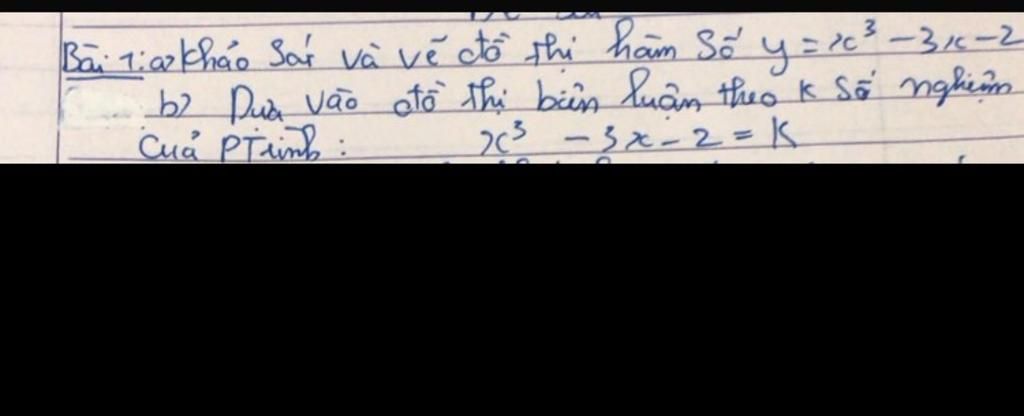 Bài 1: a> Khảo sát và vẽ đồ thị hàm số y = x³ - 3x - 2
b> Dựa vào đồ thị biện luận theo K số nghiệm
Của PTrình : x³ - 3x - 2 = K